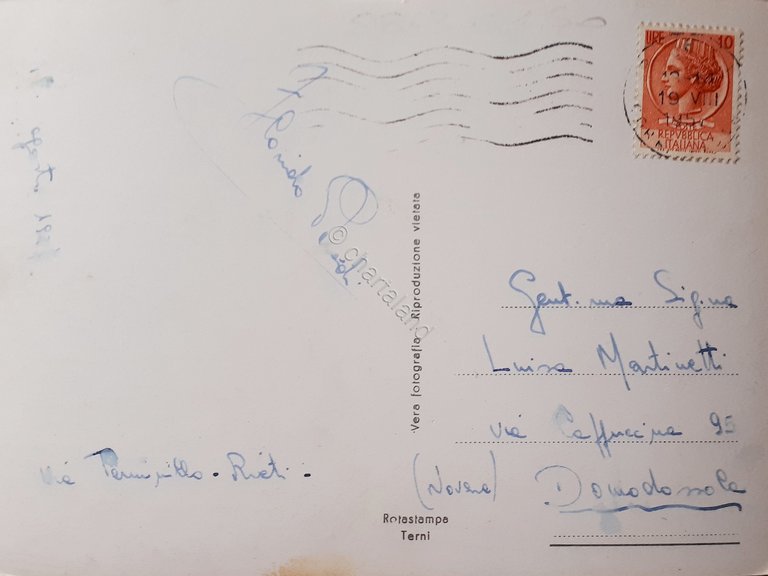 LIRE 10
19 VIII
REPUBBLICA
ITALIANA
© chartaland
Vera fotografia Riproduzione vietata
Gent.ma Sig.na
Luisa Martinetti
Via Cappuccina 95
(Novara) Domodossola
Via Terminillo - Rieti -
Rotastampa
Terni